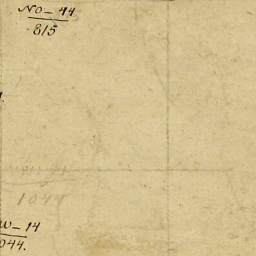 NO – 44
815
1044
W – 14
044.